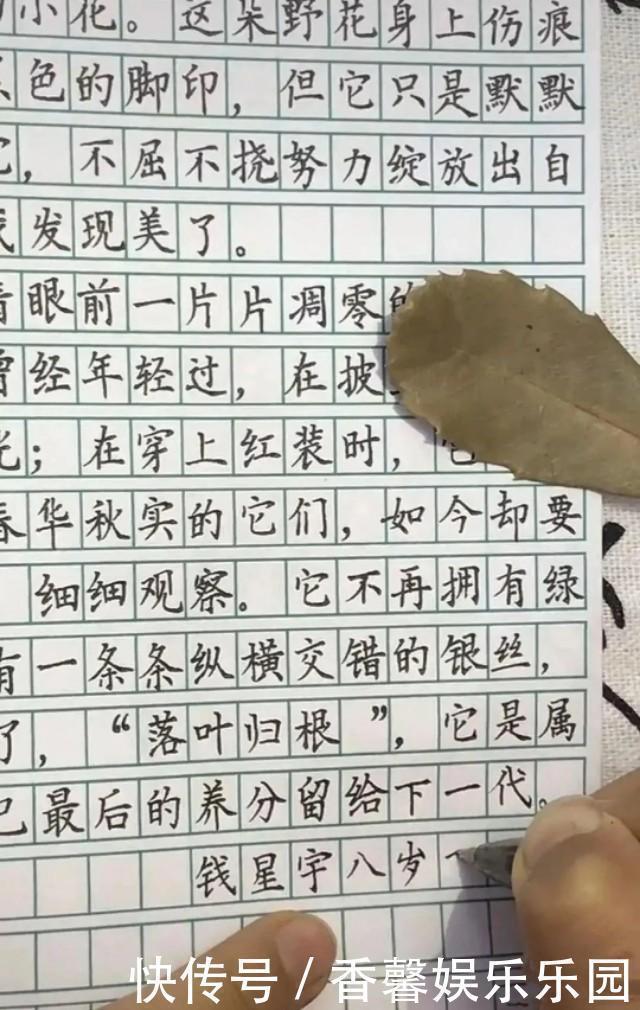 小花。这朵野花身上伤痕
色的脚印，但它只是默默
，不屈不挠努力绽放出自
发现美了。
眼前一片片凋零的
经年轻过，在披
；在穿上红装时，它
春华秋实的它们，如今却要
细细观察。它不再拥有绿
有一条条纵横交错的银丝，
了，“落叶归根”，它是属
最后的养分留给下一代。
钱星宇八岁
快传号/香馨娱乐乐园